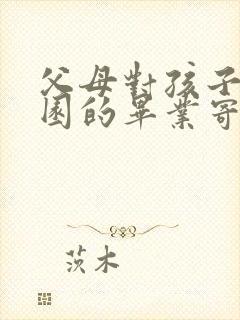 父母對孩子
園的畢業寄
茨木